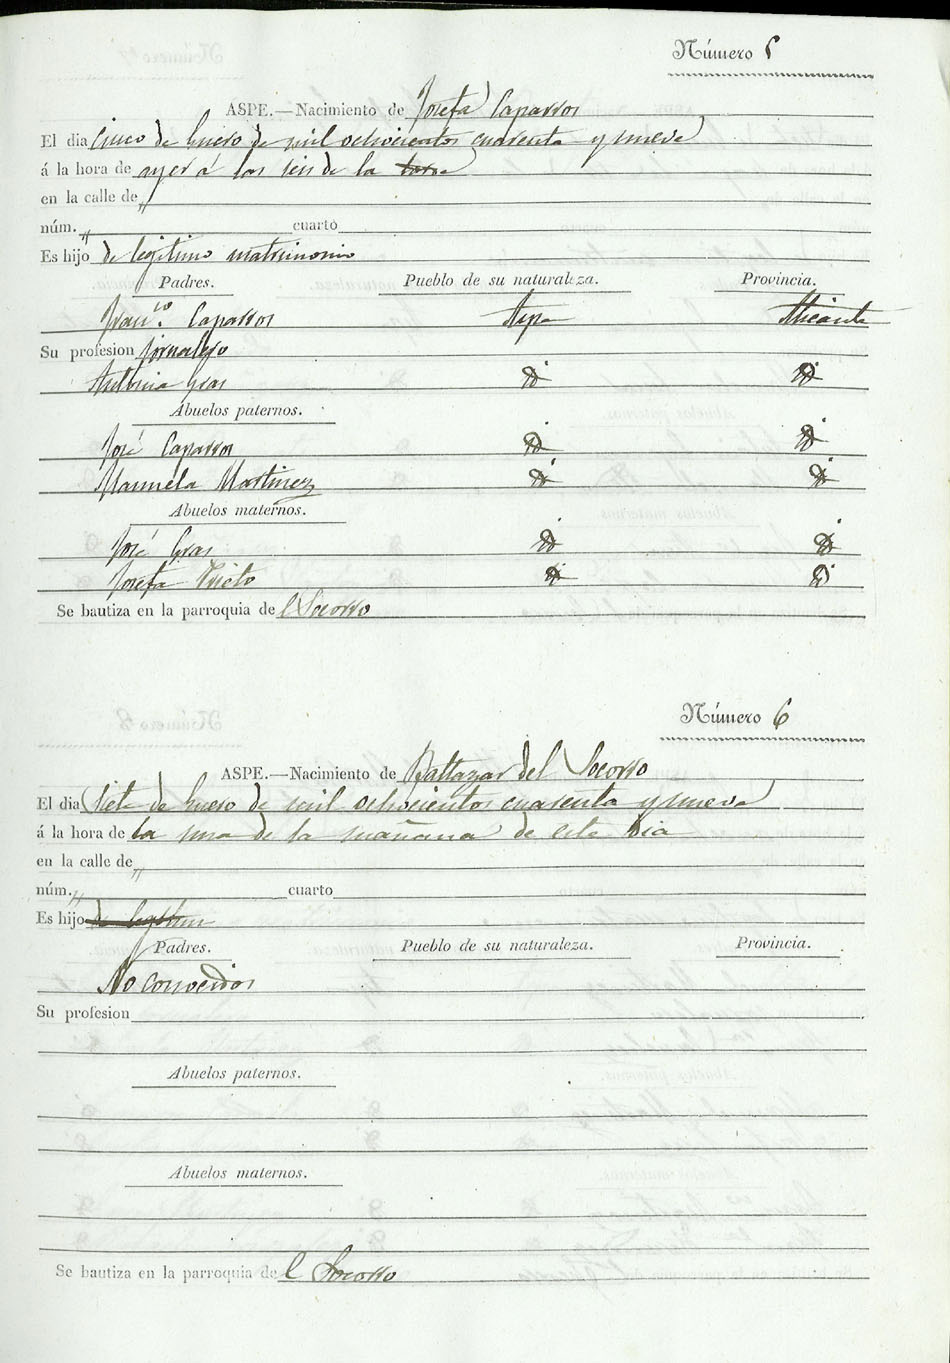 Número 5
ASPE.—Nacimiento de Josefa Caparros
El dia cinco de Enero de mil ochocientos cuarenta y nueve
á la hora de ayer á las seis de la tarde
en la calle de "
núm. " cuarto
Es hijo de legitimo matrimonio
Padres. Pueblo de su naturaleza. Provincia.
Fran.co Caparros Aspe Alicante
Su profesion jornalero
Antonia Gras id id
Abuelos paternos.
José Caparros id id
Manuela Martinez id id
Abuelos maternos.
José Gras id id
Josefa Prieto id id
Se bautiza en la parroquia de l Socorro
Número 6
ASPE.—Nacimiento de Baltazar del Socorro
El dia siete de Enero de mil ochocientos cuarenta y nueve
á la hora de la una de la mañana de este dia
en la calle de "
núm. " cuarto
Es hijo de legitimo
Padres. Pueblo de su naturaleza. Provincia.
No conocidos
Su profesion
Abuelos paternos.
Abuelos maternos.
Se bautiza en la parroquia de l Socorro